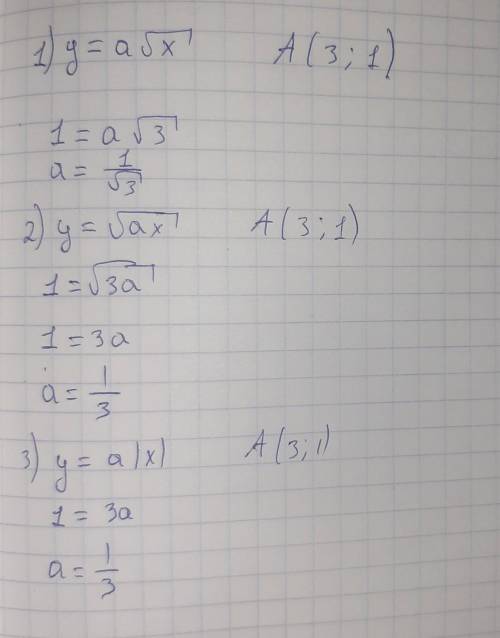 1) y = a√x A(3; 1)
1 = a√3
a = 1/√3
2) y = √ax A(3; 1)
1 = √3a
1 = 3a
a = 1/3
3) y = a|x| A(3; 1)
1 = 3a
a = 1/3